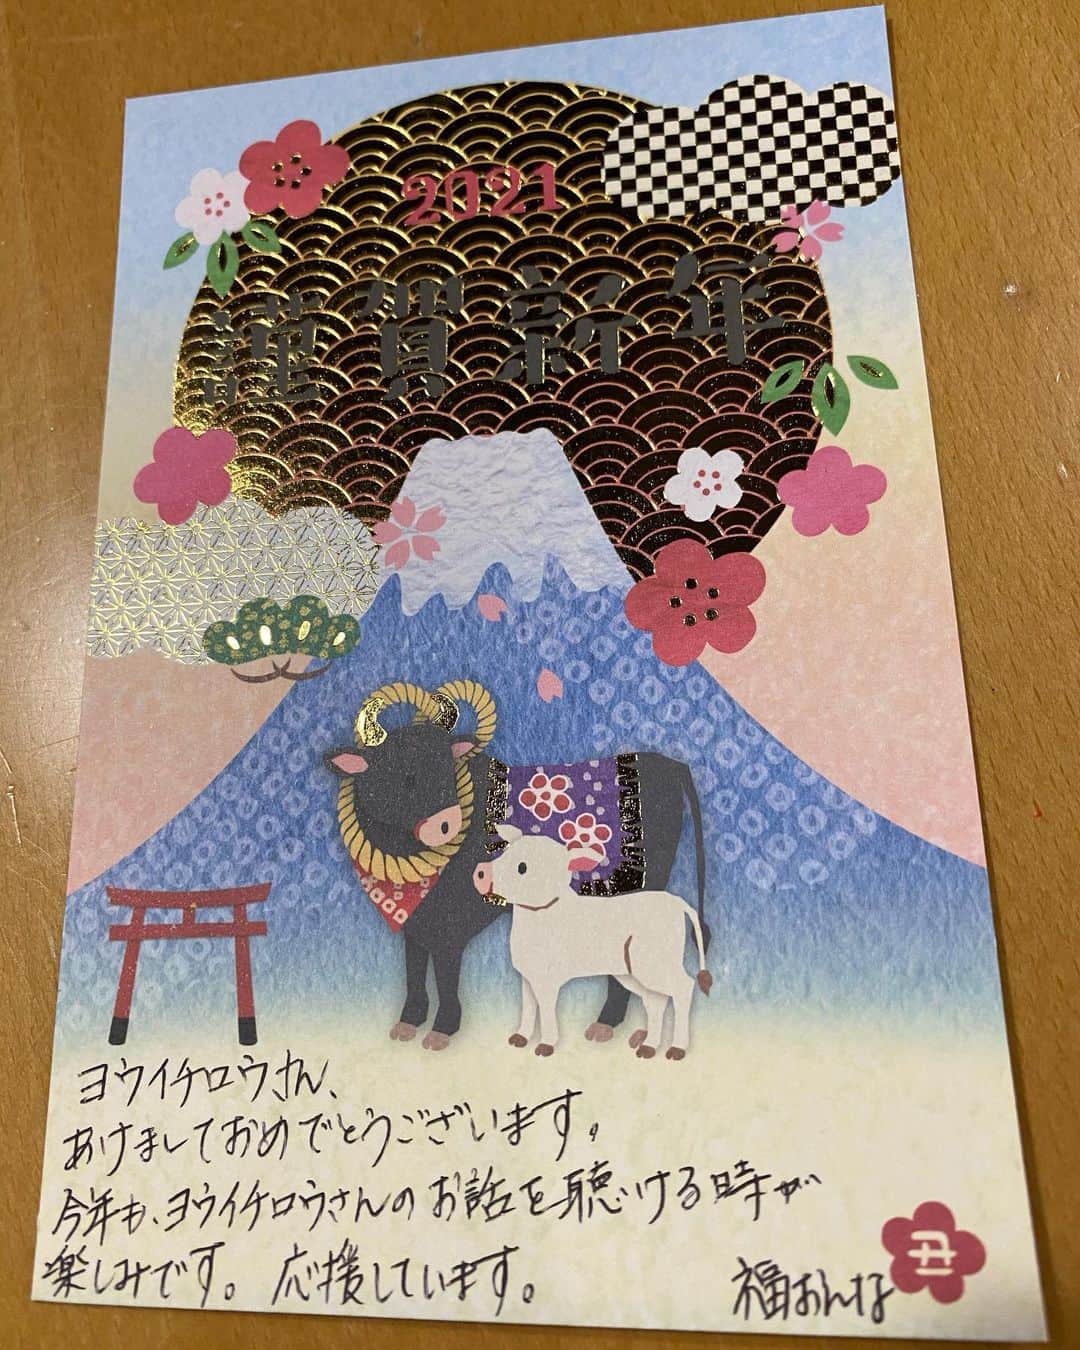 2021
謹賀新年
ヨウイチロウさん、
あけましておめでとうございます。
今年も、ヨウイチロウさんのお話を聴ける時が
楽しみです。応援しています。
福おんな
丑